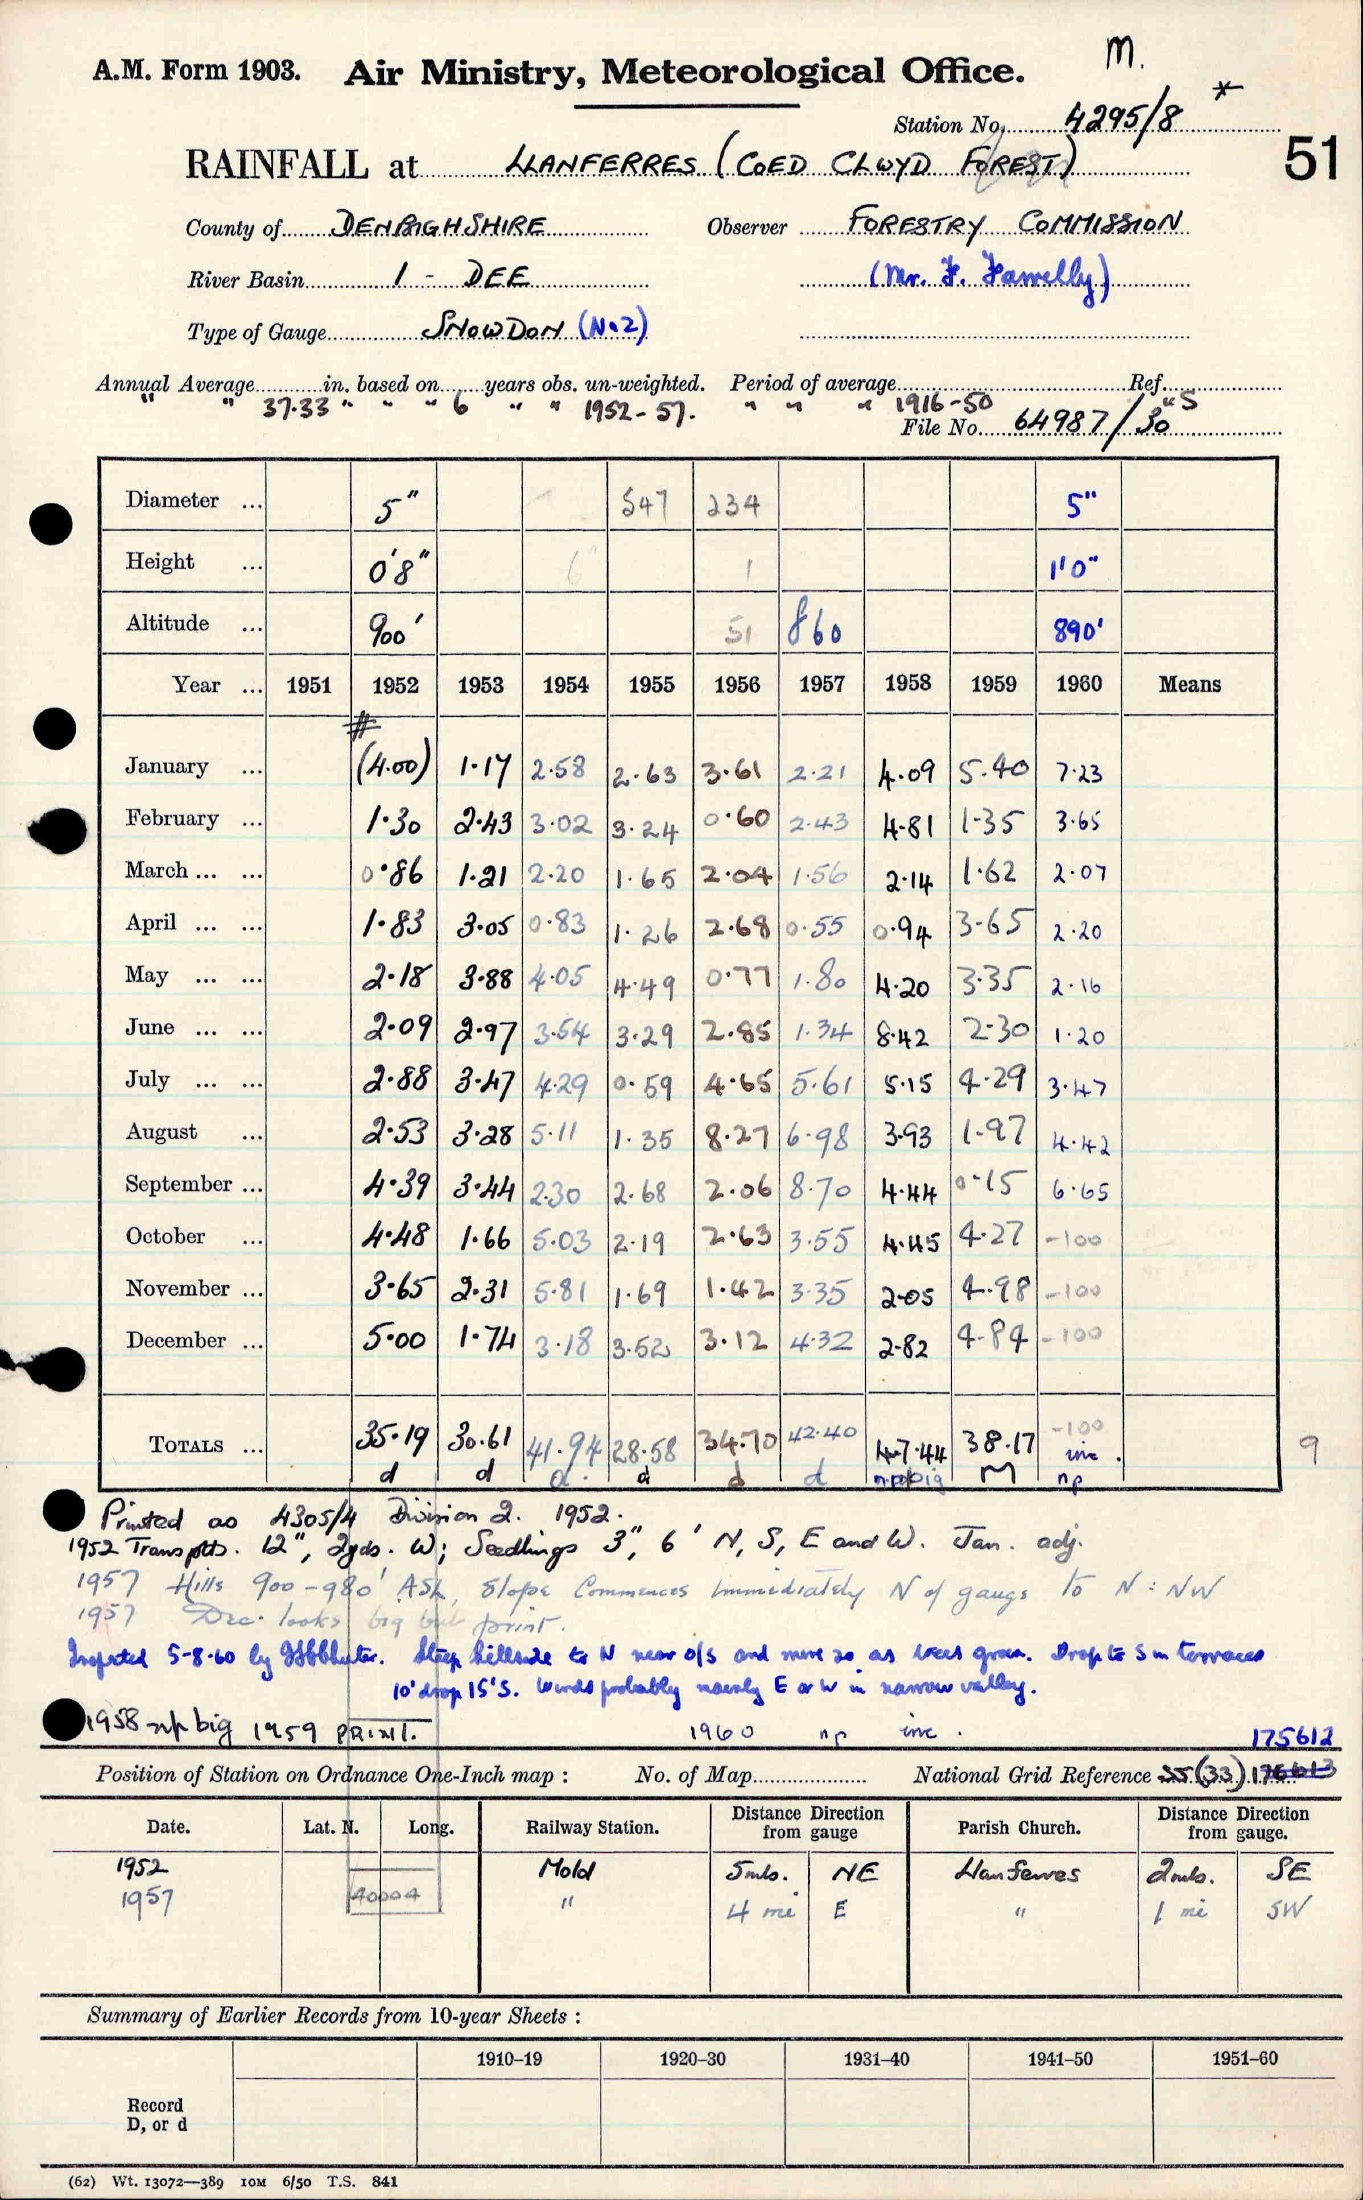 M.
A.M. Form 1903. Air Ministry, Meteorological Office.
Station No. 4295/8 *
51
RAINFALL at LLANFERRES (COED CLWYD FOREST)
County of DENBIGHSHIRE Observer FORESTRY COMMISSION
River Basin 1 - DEE (Mr. F. Farrelly)
Type of Gauge SNOWDON (No2)
Annual Average in. based on years obs. un-weighted. Period of average Ref.
" " 37.33 " " " 6 " " 1952-57. " " " 1916-50 "S
File No. 64987/30
Diameter ... 5" 547 234 5"
Height ... 0'8" 6 1 1'0"
Altitude ... 900' 51 860 890'
Year ... 1951 1952 1953 1954 1955 1956 1957 1958 1959 1960 Means
#
January ... (4.00) 1.17 2.58 2.63 3.61 2.21 4.09 5.40 7.23
February ... 1.30 2.43 3.02 3.24 0.60 2.43 4.81 1.35 3.65
March ... ... 0.86 1.21 2.20 1.65 2.04 1.56 2.14 1.62 2.07
April ... ... 1.83 3.05 0.83 1.26 2.68 0.55 0.94 3.65 2.20
May ... ... 2.18 3.88 4.05 4.49 0.77 1.80 4.20 3.35 2.16
June ... ... 2.09 2.97 3.54 3.29 2.85 1.34 8.42 2.30 1.20
July ... ... 2.88 3.47 4.29 0.59 4.65 5.61 5.15 4.29 3.47
August ... 2.53 3.28 5.11 1.35 8.27 6.98 3.93 1.97 4.42
September ... 4.39 3.44 2.30 2.68 2.06 8.70 4.44 0.15 6.65
October ... 4.48 1.66 5.03 2.19 2.63 3.55 4.45 4.27 -100
November ... 3.65 2.31 5.81 1.69 1.42 3.35 2.05 4.98 -100
December ... 5.00 1.74 3.18 3.52 3.12 4.32 2.82 4.84 -100
TOTALS ... 35.19 30.61 41.94 28.58 34.70 42.40 47.44 38.17 -100 inc. 9
d d d. d d d np big M np
Printed as 4305/4 Division 2. 1952.
1952 Transplts. 12", 2yds. W; Seedlings 3", 6' N, S, E and W. Jan. adj.
1957 Hills 900-980' ASL, slope Commences immediately N of gauge to N: NW
1957 Dec. looks big but print.
Inspected 5-8-60 by Steep hillside to N near o/s and more so as trees grow. Drop to S in terraces
10' drop 15'S. Winds probably mainly E or W in narrow valley.
1958 np big 1959 PRINT. 1960 np inc. 175612
Position of Station on Ordnance One-Inch map: No. of Map National Grid Reference SJ (33) 176613
Date. Lat. N. Long. Railway Station. Distance Direction from gauge Parish Church. Distance Direction from gauge.
1952 Mold 5 mls. NE Llanferres 2 mls. SE
1957 40004 " 4 mi E " 1 mi SW
Summary of Earlier Records from 10-year Sheets:
1910–19 1920–30 1931–40 1941–50 1951–60
Record
D, or d
(62) Wt. 13072—389 10M 6/50 T.S. 841